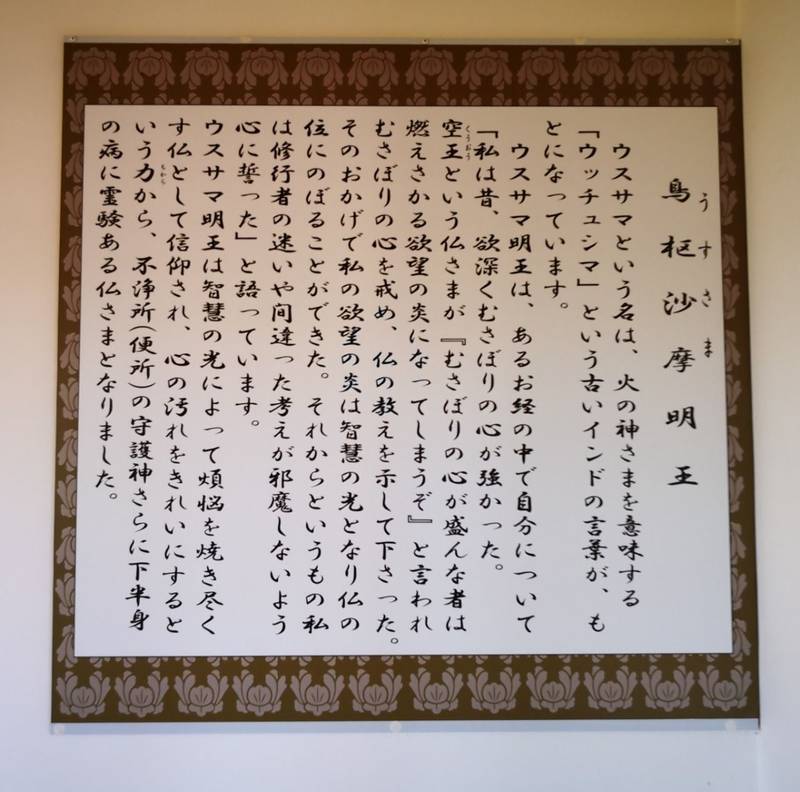 烏枢沙摩明王
うすさま
ウスサマという名は、火の神さまを意味する
「ウッチュシマ」という古いインドの言葉が、も
とになっています。
ウスサマ明王は、あるお経の中で自分について
「私は昔、欲深くむさぼりの心が強かった。
空王という仏さまが『むさぼりの心が盛んな者は
くうおう
燃えさかる欲望の炎になってしまうぞ』と言われ
むさぼりの心を戒め、仏の教えを示して下さった。
そのおかげで私の欲望の炎は智慧の光となり仏の
位にのぼることができた。それからというもの私
は修行者の迷いや間違った考えが邪魔しないよう
心に誓った」と語っています。
ウスサマ明王は智慧の光によって煩悩を焼き尽く
す仏として信仰され、心の汚れをきれいにすると
いう力から、不浄所(便所)の守護神さらに下半身
ちから
の病に霊験ある仏さまとなりました。